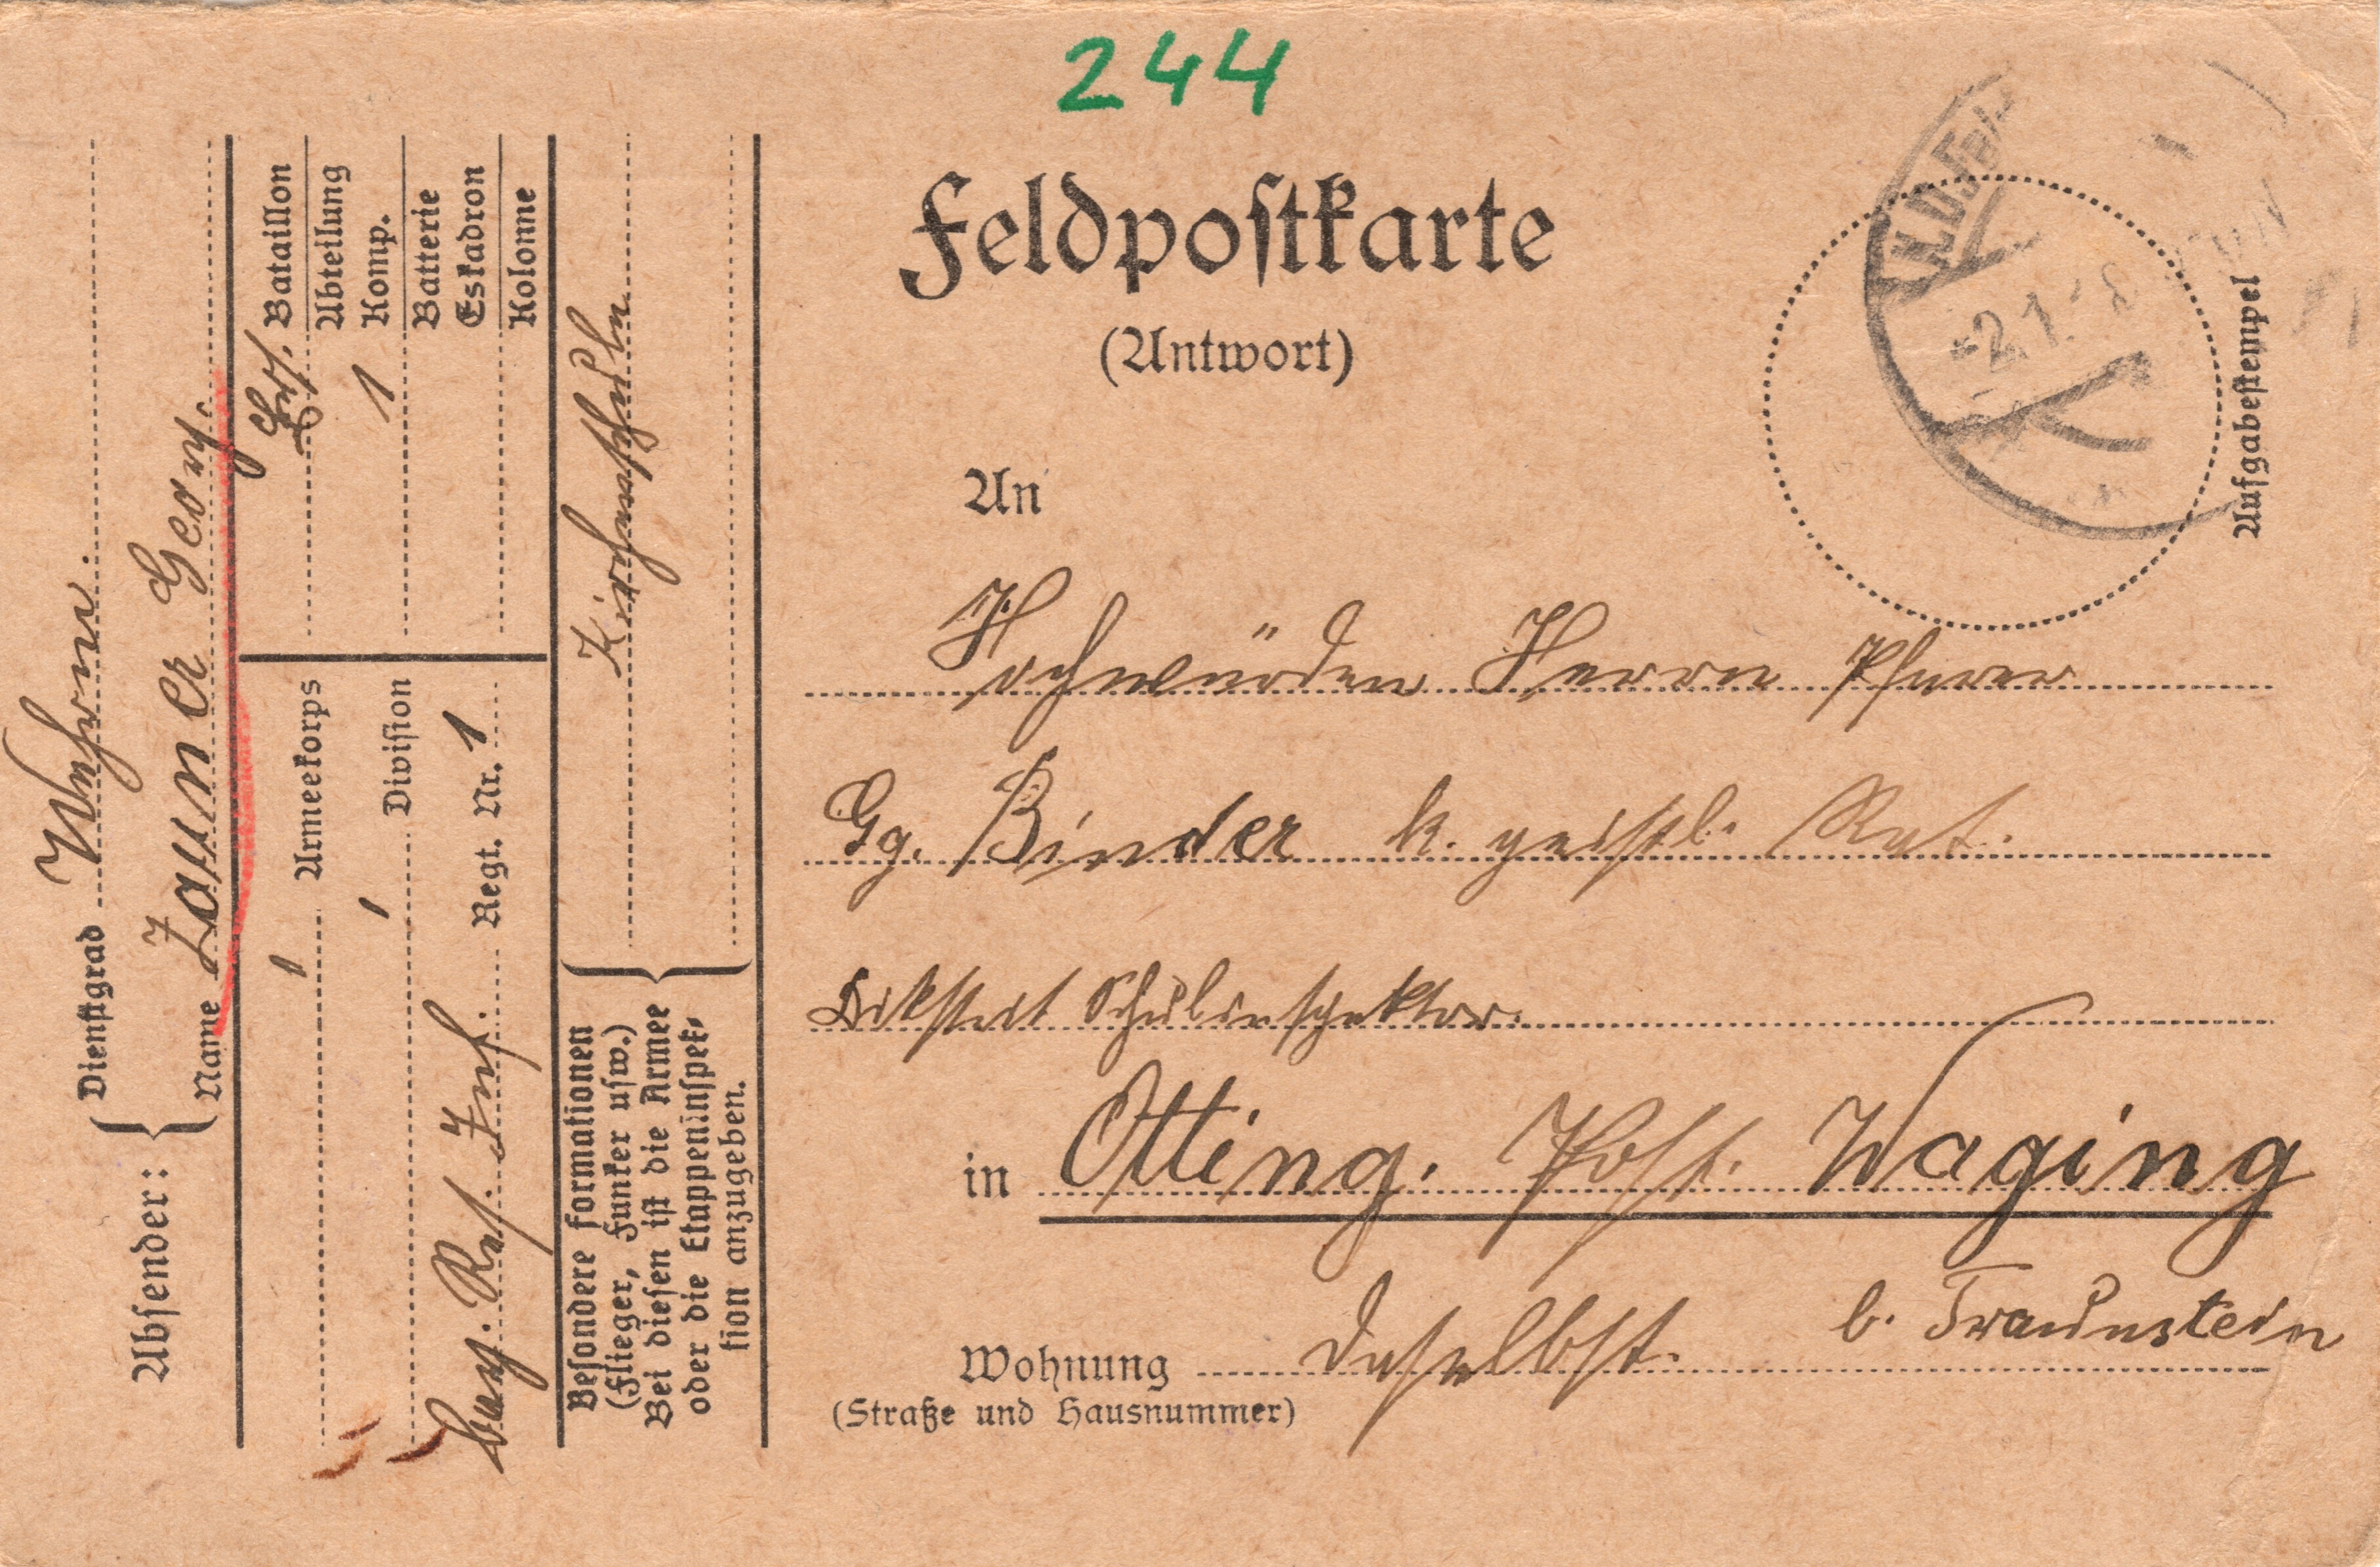 244
Feldpostkarte
(Antwort)
Aufgabestempel
An
Hochwürden Herrn Pfarrer
Gg. Binder k. geistl. Rat.
Schulinspektor.
in Otting. Post. Waging
b. Traunstein
Wohnung daselbst.
(Straße und Hausnummer)
Absender:
Dienstgrad Wehrm.
Name Zauner Georg.
1 Armeekorps
1 Division
bay. Res. Inf. Regt. Nr. 1
Ers. Bataillon
Abteilung
1 Komp.
Batterie
Eskadron
Kolonne
Besondere Formationen
(Flieger, Funker usw.)
Bei diesen ist die Armee
oder die Etappeninspek-
tion anzugeben.
Kirchenschule